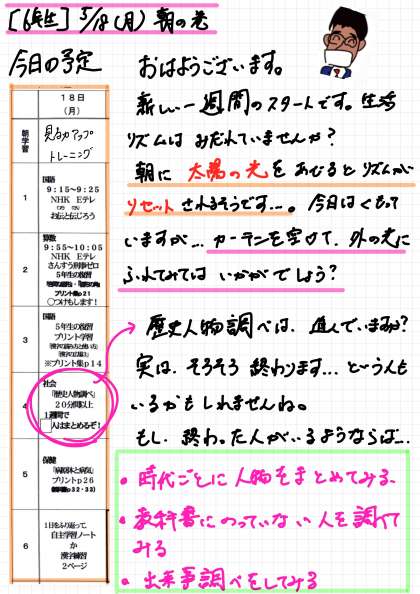 [6年生] 5/18(月) 朝の光
今日の予定
おはようございます。
新しい一週間のスタートです。生活
リズムは みだれていませんか?
朝に 太陽の光をあびるとリズムが
リセットされるそうです…。今日はくもって
いますが… カーテンを空けて、外の光に
ふれてみては いかがでしょう?
歴史人物調べは、進んでいますか?
実は、そろそろ 終わります…という人も
いるかもしれませんね。
もし、終わった人がいるようならば…
・時代ごとに人物をまとめてみる。
・教科書にのっていない人を調べて
みる
・出来事調べをしてみる
18日
(月)
朝学習
見る力アップ
トレーニング
1
国語
9:15~9:25
NHK Eテレ
お伝と伝じろう
2
算数
9:55~10:05
NHK Eテレ
さんすう刑事ゼロ
5年生の復習
プリント集p21
○つけもします!
3
国語
5年生の復習
プリント学習
※プリント集p14
4
社会
「歴史人物調べ」
20分間以上
1週間で
人はまとめるぞ!
5
保健
「病原体と病気」
プリントp26
6
1日をふり返って、
自主学習ノート
か
漢字練習
2ページ